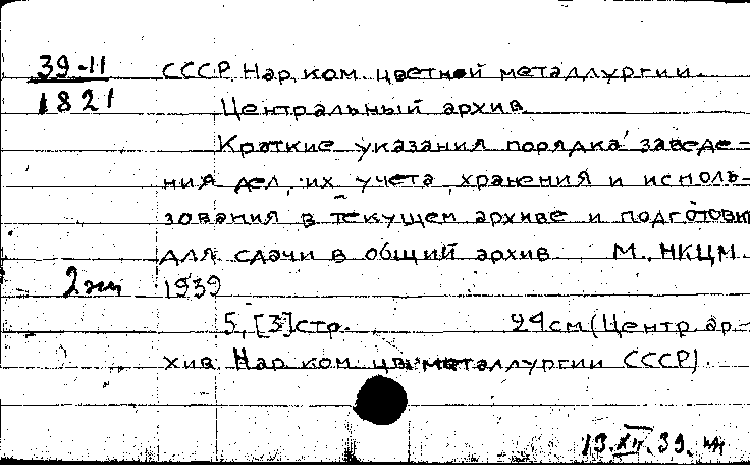 39-11 СССР. Нар. ком. цветной металлургии.
1821 Центральный архив.
Краткие указания порядка заведе-
ния дел, их учета, хранения и исполь-
зования в текущем архиве и подготовки
для сдачи в общий архив. М., НКЦМ.
2 экз 1939
5, [3] стр. 24 см (Центр. ар-
хив Нар. ком. цв. металлургии СССР).
13.XII.39.